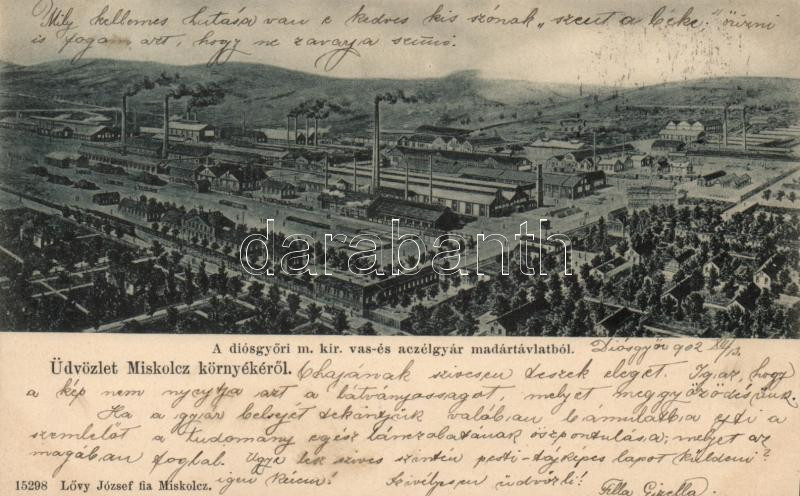 Mily kellemes hutása van e kedves kis szónak "szent a béke." őrizni
is fogom azt, hogy ne zavarja semmi.
darabanth.com
A diósgyőri m. kir. vas-és aczélgyár madártávlatból.
Diósgyőr 902 XII/13.
Üdvözlet Miskolcz környékéről.
Óhajának szivesen teszek eleget. Igaz, hogy
a kép nem nyujtja azt a látványosságot, melyet
Ha a gyár belsejét tekintjük valóban bámulatba ejti a
szemlélőt a tudomány egész lánczolatának öszpontulása, melyet az
magában foglal. Ugye lesz szives szintén pesti-tájképes lapot küldeni?
igen kérem! Szivélyesen üdvözli!
Filla Gizella
15298 Lővy József fia Miskolcz.